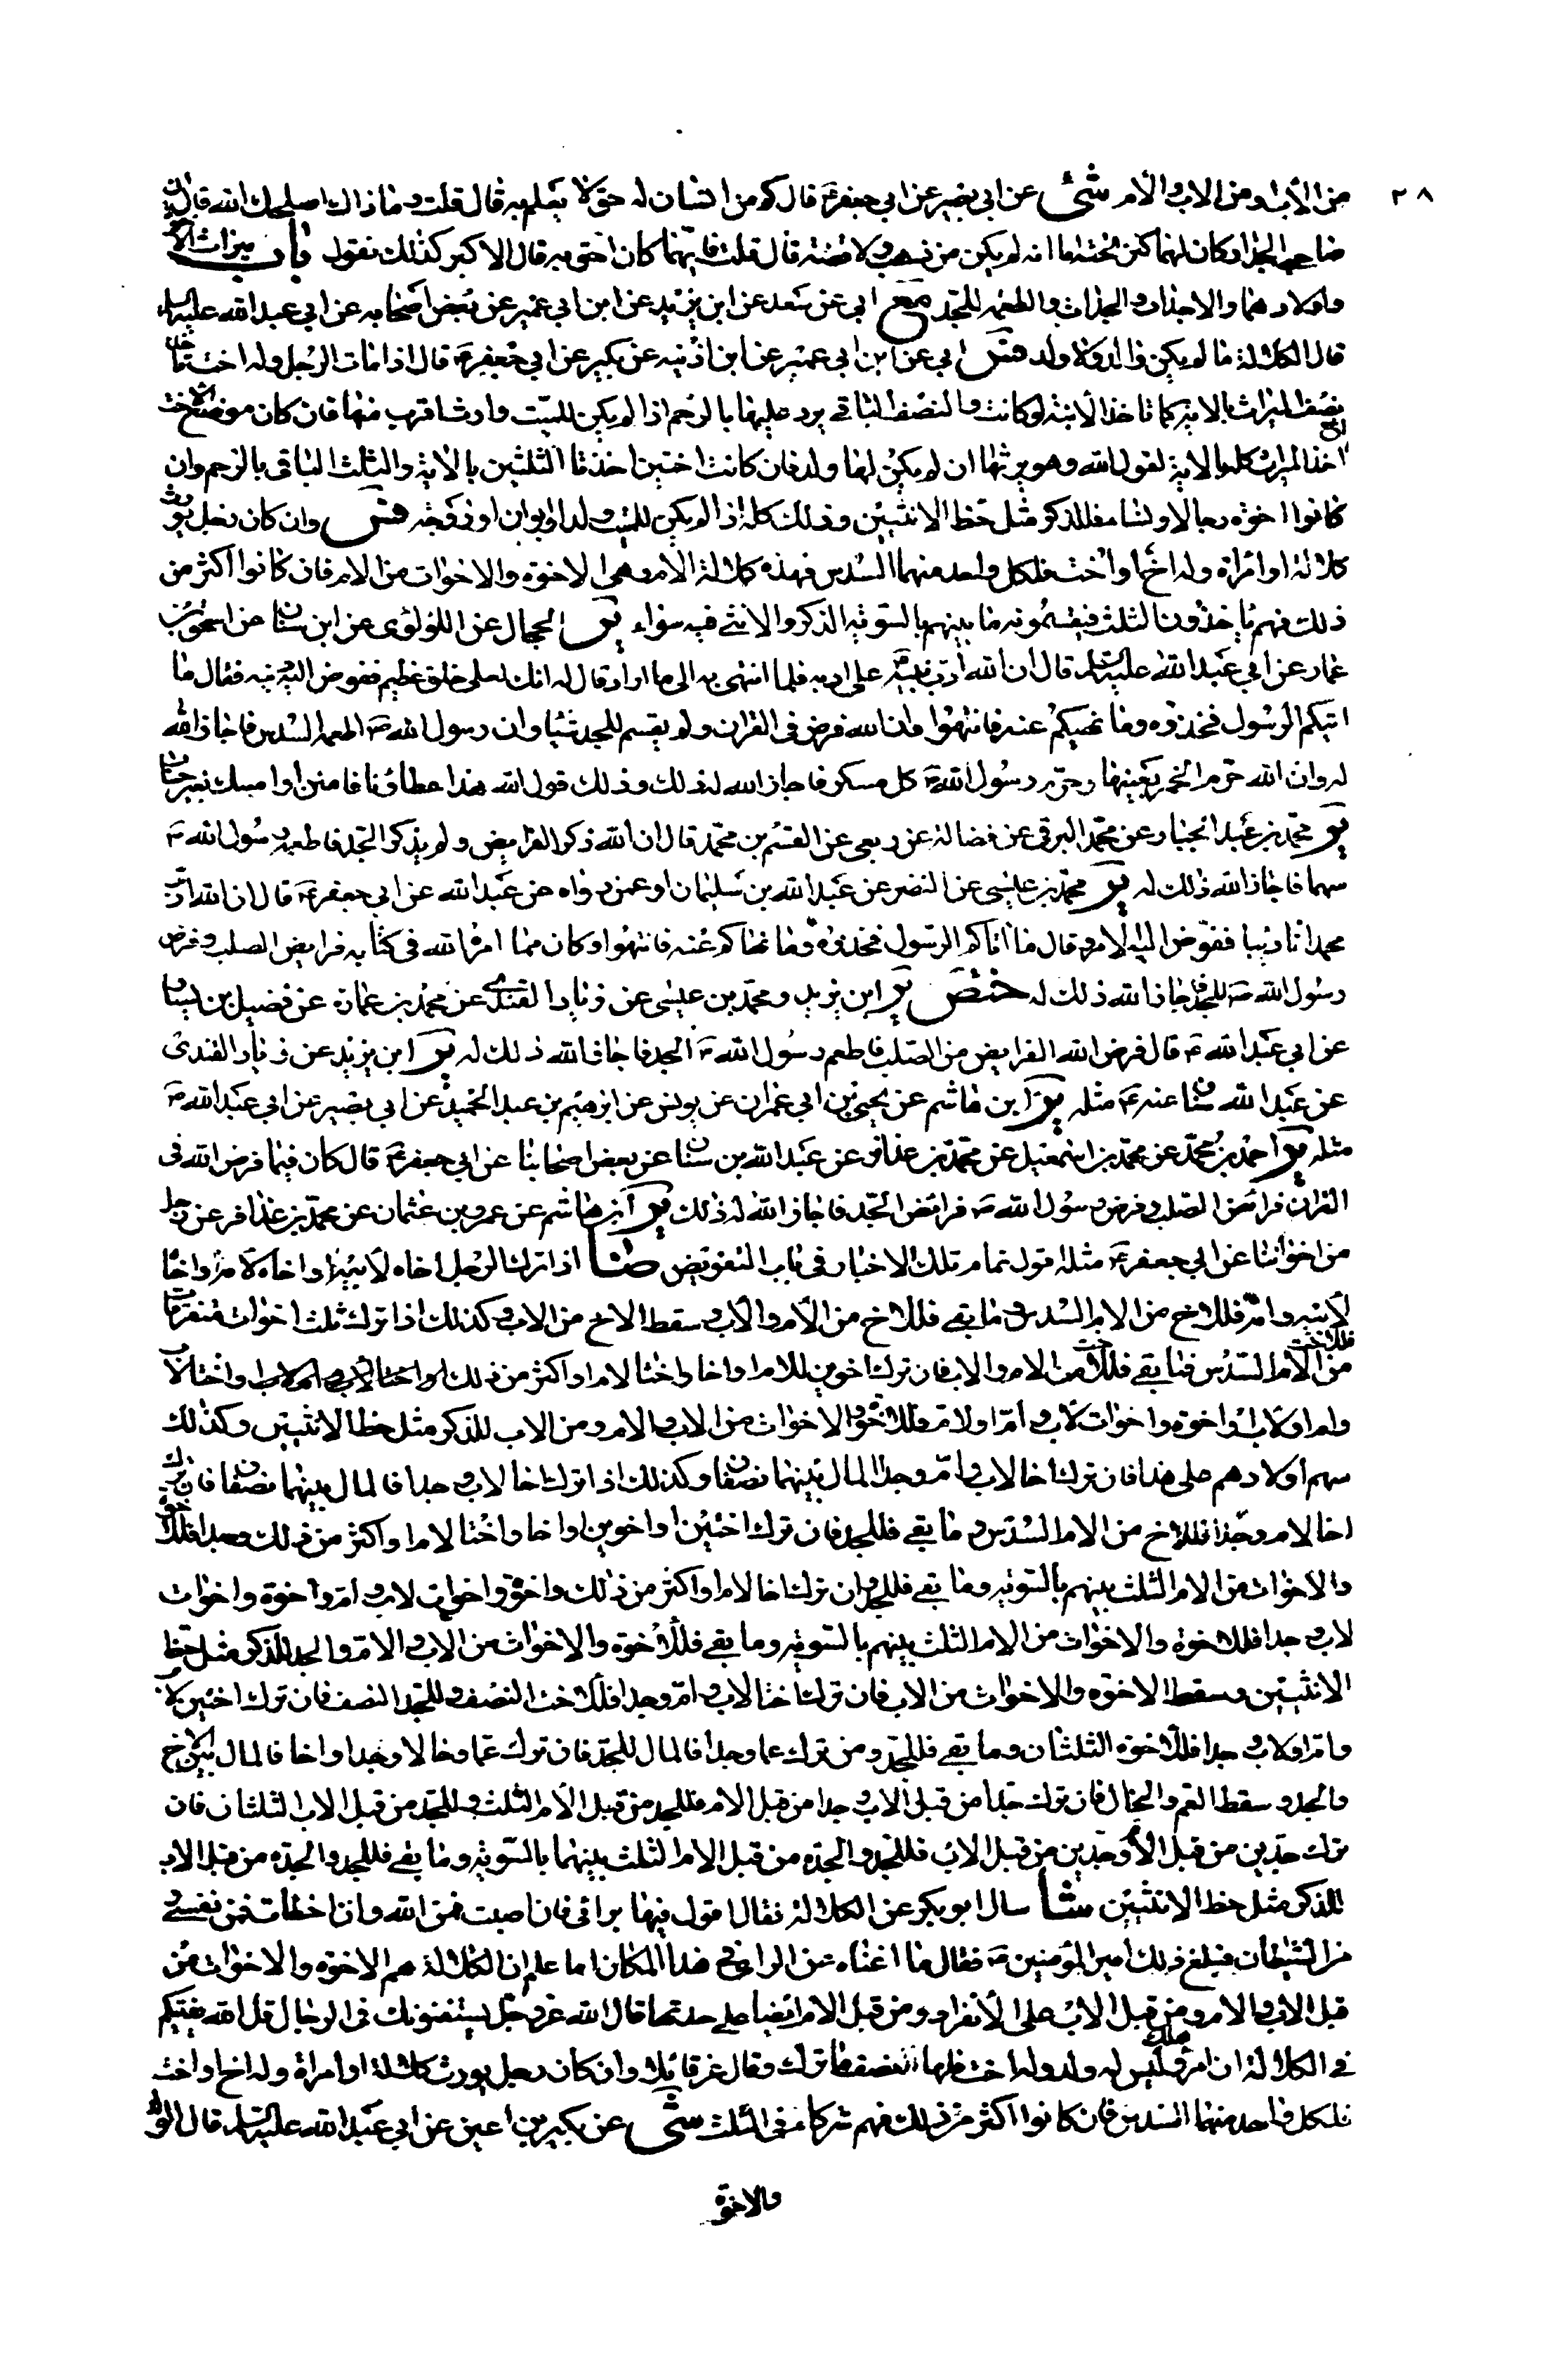 ٢٨
من الأب ومن الاب والأم شئ عن ابي بصير عن ابي جعفر ع قال كم من انسان له حق لا يعلم به قال قلت وما ذاك اصلحك الله قال ان
صاحبي الجدار كان لهما كنز تحته اما انه لم يكن من ذهب ولا فضة قال قلت فايهما كان احق به قال الاكبر كذلك نقول باب ميراث الاخوة
واولادهما والاجداد والجدات والطعمة للجد مع ابي عن سعد عن ابن يزيد عن ابن ابي عمير عن بعض اصحابه عن ابي عبد الله عليه السلام
قال الكلالة ما لم يكن والد ولا ولد فس ابي عن ابن ابي عمير عن ابن اذينه عن بكير عن ابي جعفر ع قال اذا مات الرجل وله اخت تاخذ
نصف الميراث بالاية كما تاخذ الابنة لو كانت والنصف الباقي يرد عليها بالرحم اذا لم يكن للميت وارث اقرب منها فان كان موضع الاخت اخ
اخذ الميراث كله بالاية لقول الله وهو يرثها ان لم يكن لها ولد فان كانت اختين اخذتا الثلثين بالاية والثلث الباقي بالرحم وان
كانوا اخوة رجالا ونساء فللذكر مثل حظ الانثيين وذلك كله اذا لم يكن للميت ولد او ابوان او زوجة فس وان كان رجل يورث
كلالة او امراة وله اخ او اخت فلكل واحد منهما السدس فهذه كلالة الام وهي الاخوة والاخوات من الام فان كانوا اكثر من
ذلك فهم ياخذون الثلث فيقسمونه ما بينهم بالسوية الذكر والانثى فيه سواء ير الحجال عن اللؤلؤى عن ابن سنان عن اسحق بن
عمار عن ابي عبد الله عليه السلام قال ان الله ادب نبيه ص على ادبه فلما انتهى به الى ما اراد قال له انك لعلى خلق عظيم ففوض اليه دينه فقال ما
اتيكم الرسول فخذوه وما نهيكم عنه فانتهوا وان الله فرض في القران ولم يقسم للجد شيئا وان رسول الله ص اطعمه السدس فاجاز الله
له وان الله حرم الخمر بعينها وحرم رسول الله ص كل مسكر فاجاز الله له ذلك وذلك قول الله هذا عطاؤنا فامنن او امسك بغير حساب
ير محمد بن عبد الجبار عن محمد البرقي عن فضالة عن ربعي عن القسم بن محمد قال ان الله ذكر الفرايض ولم يذكر الجد فاطعمه رسول الله ص
سهما فاجاز الله ذلك له ير محمد بن عليسى عن النضر عن عبد الله بن سليمان او عمن رواه عن عبد الله عن ابي جعفر ع قال ان الله ادب
محمدا تاديبا ففوض اليه الامر وقال ما اتاكم الرسول فخذوه وما نهاكم عنه فانتهوا وكان مما امره الله في كتابه فرايض الصلب وفرض
رسول الله ص للجد فاجاز الله ذلك له ختص ير ابن يزيد ومحمد بن عيسى عن زياد القندى عن محمد بن عمارة عن فضيل بن يسار
عن ابي عبد الله ع قال فرض الله الفرايض من الصلب فاطعم رسول الله ص الجد فاجاز الله ذلك له ير ابن يزيد عن زياد القندى
عن عبد الله سنان عنه ع مثله ير ابن هاشم عن يحيى بن ابي عمران عن يونس عن ابرهيم بن عبد الحميد عن ابي بصير عن ابي عبد الله ع
مثله ير احمد بن محمد عن محمد بن اسمعيل عن محمد بن عذافر عن عبد الله بن سنان عن بعض اصحابنا عن ابي جعفر ع قال كان فيما فرض الله في
القران فرائض الصلب وفرض رسول الله ص فرائض الجد فاجاز الله له ذلك ير ابن هاشم عن عمرو بن عثمان عن محمد بن عذافر عن رجل
من اخواننا عن ابي جعفر ع مثله اقول تمام تلك الاخبار في باب التفويض ضا اذا ترك الرجل اخاه لابيه واخاه لامه واخا
لابيه وامه فللاخ من الام السدس وما بقى فللاخ من الام والاب وسقط الاخ من الاب وكذلك اذا ترك ثلث اخوات متفرقات فللاخت
من الام السدس وما بقى فللاخت من الام والاب فان ترك اخوين للام او اخا واختا لام او اكثر من ذلك واخا لاب وام او لاب واختا لاب
وام او لاب او اخوة واخوات لاب وام او لاب فللاخوة والاخوات من الاب والام ومن الاب للذكر مثل حظ الانثيين وكذلك
سهم اولادهم على هذا فان ترك اخا لاب وام وجدا المال بينهما نصفان وكذلك اذا ترك اخا لاب وجدا فالمال بينهما نصفان فان ترك
اخا لام وجدا فللاخ من الام السدس وما بقى فللجد فان ترك اختين او اخوين او اخا واختا لام او اكثر من ذلك وجدا فللاخوة
والاخوات من الام الثلث بينهم بالسوية وما بقى فللجد وان ترك اخا لام او اكثر من ذلك واخوة واخوات لاب وام واخوة واخوات
لاب وجدا فللاخوة والاخوات من الام الثلث بينهم بالسوية وما بقى فللاخوة والاخوات من الاب والام والجد للذكر مثل حظ
الانثيين وسقط الاخوة والاخوات من الاب فان ترك اختا لاب وام وجدا فللاخت النصف وللجد النصف فان ترك اختين لاب
وام او لاب وجدا فللاخوة الثلثان وما بقى فللجد ومن ترك عما وجدا فالمال للجد فان ترك عما وخالا وجدا واخا فالمال بين الاخ
والجد وسقط العم والخال فان ترك جدا من قبل الاب وجدا من قبل الام فللجد من قبل الام الثلث وللجد من قبل الاب الثلثان فان
ترك جدين من قبل الام وجدين من قبل الاب فللجد والجدة من قبل الام الثلث بينهما بالسوية وما بقى فللجد والجدة من قبل الاب
للذكر مثل حظ الانثيين شا سال ابو بكر عن الكلالة فقال اقول فيها برائي فان اصبت فمن الله وان اخطات فمن نفسي
ومن الشيطان فبلغ ذلك امير المؤمنين ع فقال ما اغناه عن الراي في هذا المكان اما علم ان الكلالة هم الاخوة والاخوات من
قبل الاب والام ومن قبل الاب على الانفراد ومن قبل الام ايضا على حدتها قال الله عز وجل يستفتونك في الرجال قل الله يفتيكم
في الكلالة ان امرؤ هلك ليس له ولد وله اخت فلها نصف ما ترك وقال عز قائلا وان كان رجل يورث كلالة او امراة وله اخ او اخت
فلكل واحد منهما السدس فان كانوا اكثر من ذلك فهم شركاء في الثلث شى عن بكير بن اعين عن ابي عبد الله عليه السلام قال الولد
والاخوة